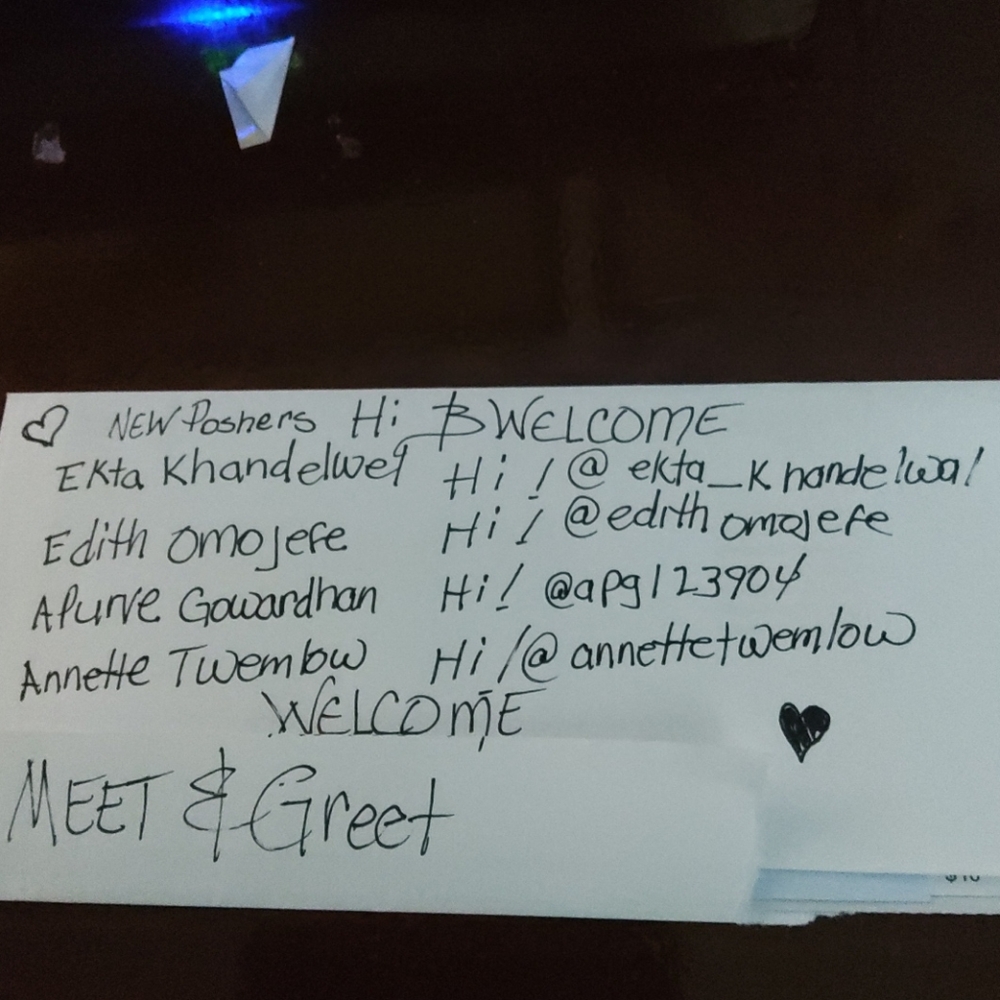 ♡ NEW Poshers Hi & WELCOME
Ekta Khandelwel Hi! @ekta_Khandelwal
Edith Omojefe Hi! @edithomojefe
Apurve Gowardhan Hi! @apg123904
Annette Twembow Hi! @annettetwemlow
WELCOME
♥
MEET & Greet